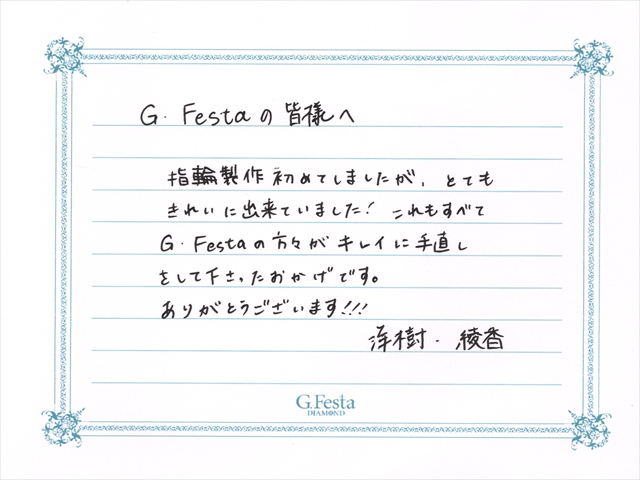 G. Festaの皆様へ
指輪製作初めてしましたが、とても
きれいに出来ていました! これもすべて
G. Festaの方々がキレイに手直し
をして下さったおかげです。
ありがとうございます!!!
洋樹・綾香
G.Festa
DIAMOND